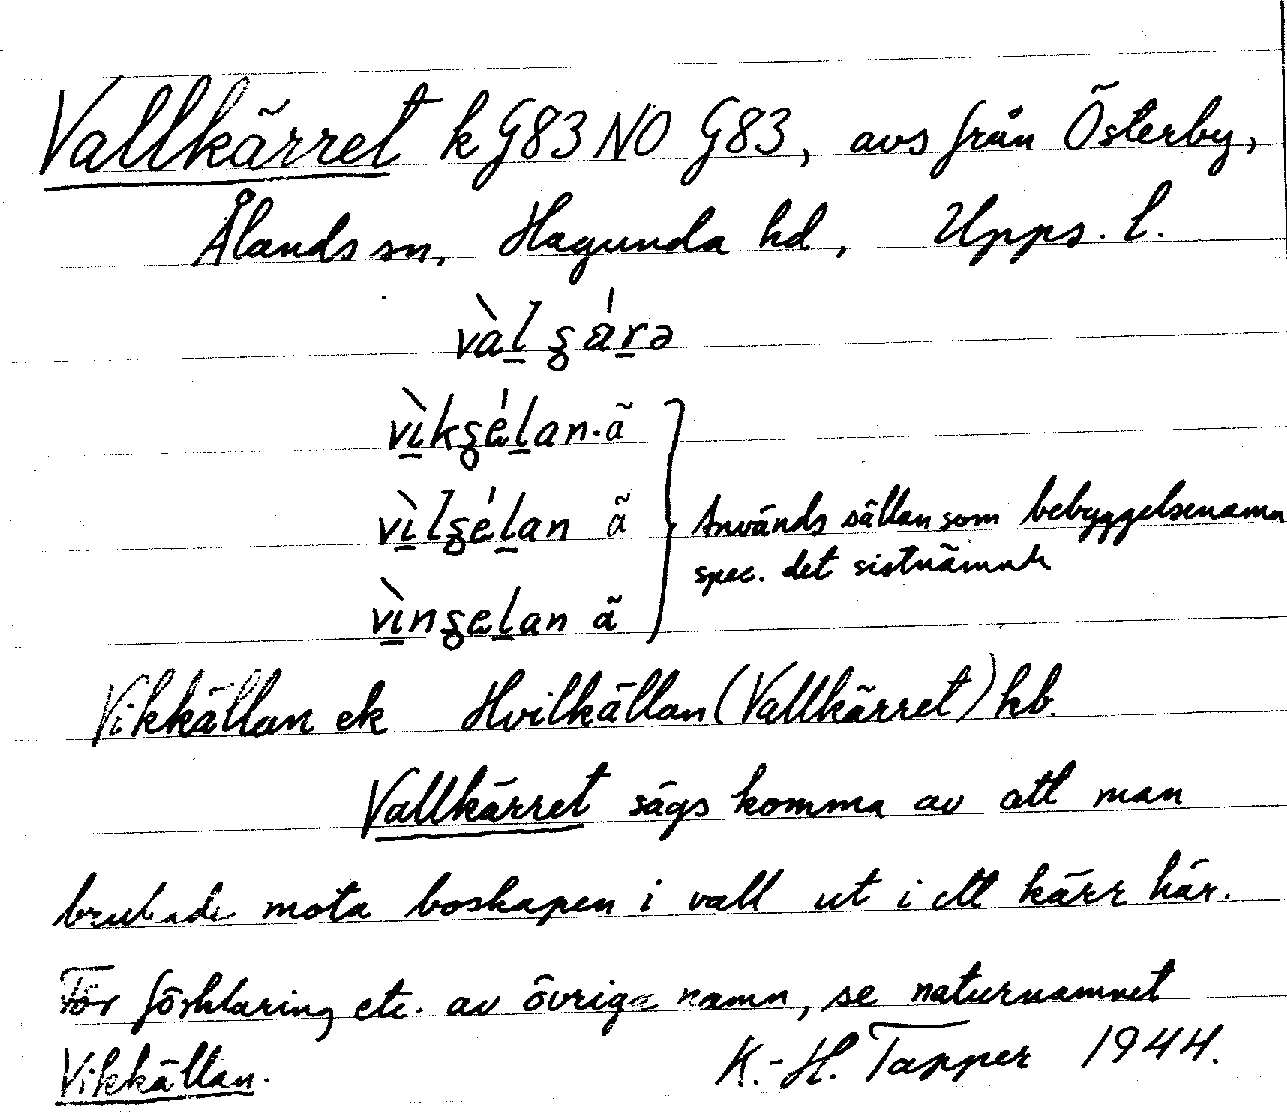 Vallkärret k G83 NO G83, avs från Österby,
Ålands sn, Hagunda hd, Upps. l.
vàl̲ʂá̲rə
vìkʂél̲an. ã
vìlʂél̲an ã
vìnʂel̲an ã
Används sällan som bebyggelsenamn
spec. det sistnämnda
Vikkällan ek Hvilkällan (Vallkärret) hb.
Vallkärret sägs komma av att man
brukade mota boskapen i vall ut i ett kärr här.
För förklaring etc. av övriga namn, se naturnamnet
Vikkällan. K.-H. Tapper 1944.